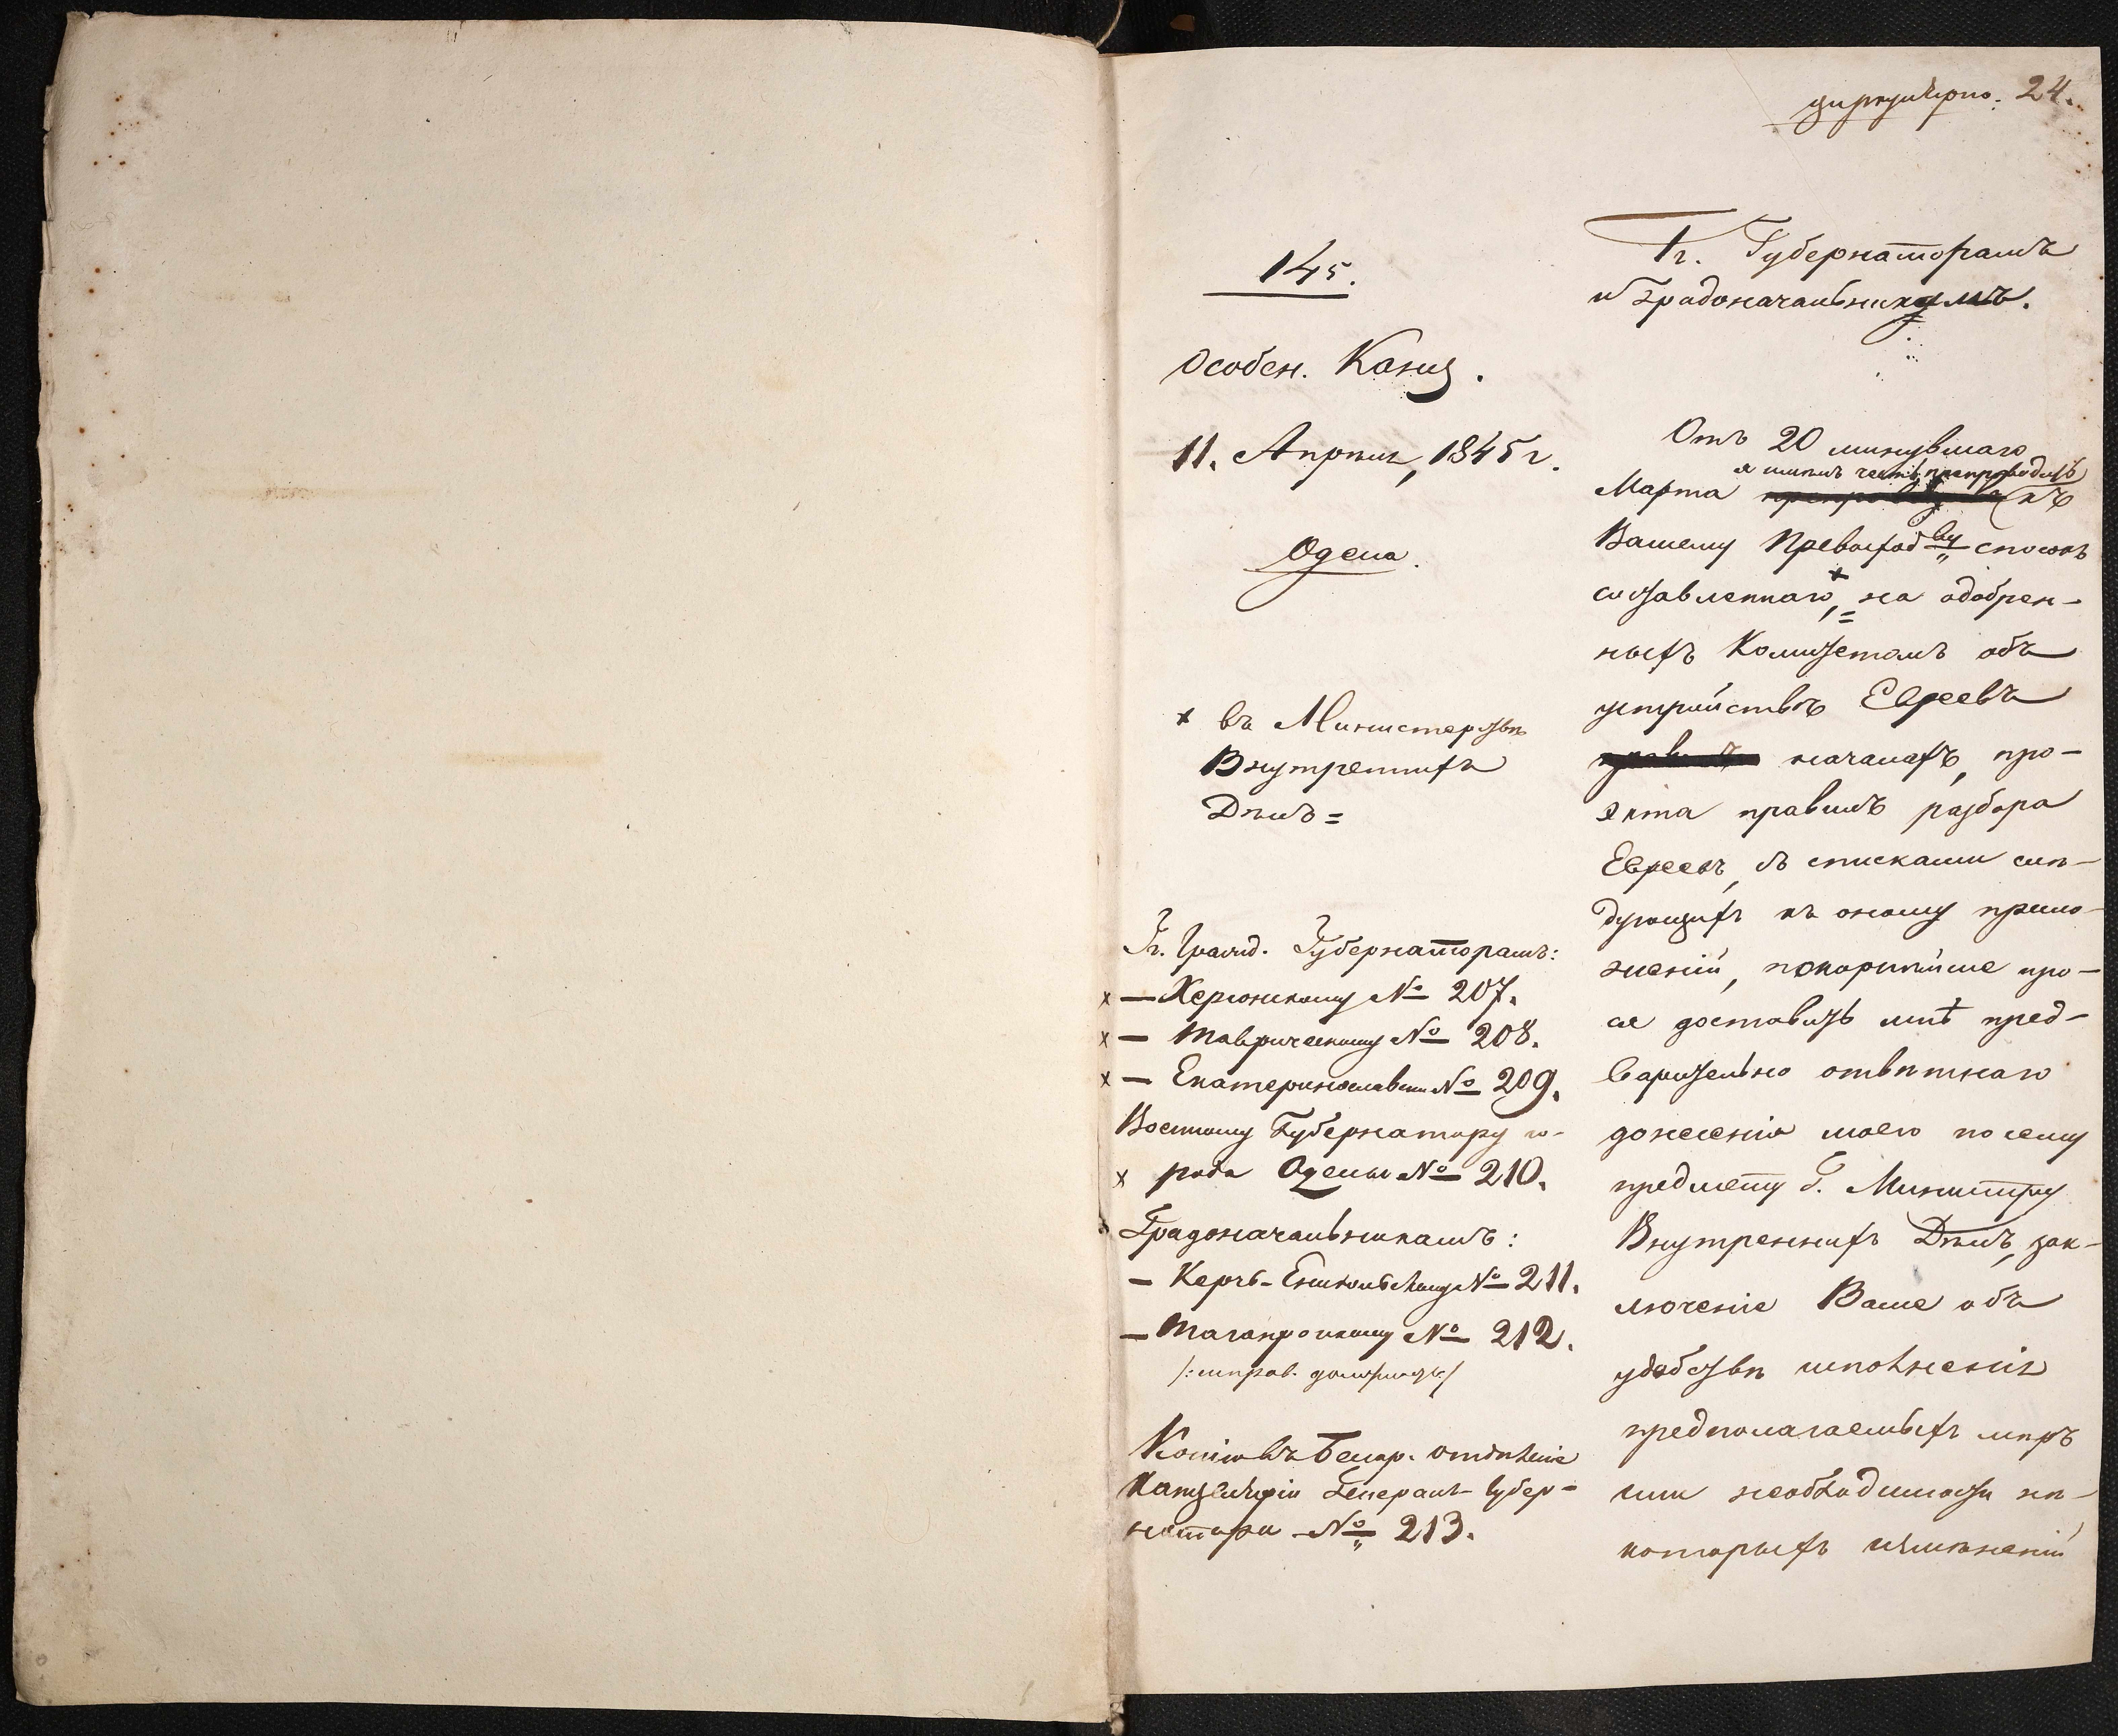 циркулярно. 24.
145.
Особен. Канц.
11. Апрѣля, 1845 г.
Одеса.
× въ Министерствѣ
Внутреннихъ
Дѣлъ =
Гг. Гражд. Губернаторамъ:
× — Херсонскому № 207.
× — Таврическому № 208.
× — Екатеринославск № 209.
Военному Губернатору го-
× рода Одесы № 210.
Градоначальникамъ:
— Керчь-Еникольскому № 211.
— Таганрогскому № 212.
/: исправ. должность /
Копію въ Бесар. отдѣленіе
Канцеляріи Генералъ-Губер-
натора № 213.
Гг. Губернаторамъ
и Градоначальникамъ.
Отъ 20 минувшаго
я имѣлъ честь препроводить
Марта къ
Вашему Превосход ву списокъ
составленнаго, × на одобрен-
ныхъ Комитетомъ объ
устройствѣ Евреевъ
началахъ, про-
экта правилъ разбора
Евреевъ, съ списками слѣ-
дующихъ къ оному прило-
женій, покорнѣйше про-
ся доставить мнѣ пред-
варительно отвѣтнаго
донесенія моего по сему
предмету Г. Министру
Внутреннихъ Дѣлъ, зак-
люченіе Ваше объ
удобствѣ исполненія
предполагаемыхъ мѣръ
или необходимости нѣ-
которыхъ измѣненій